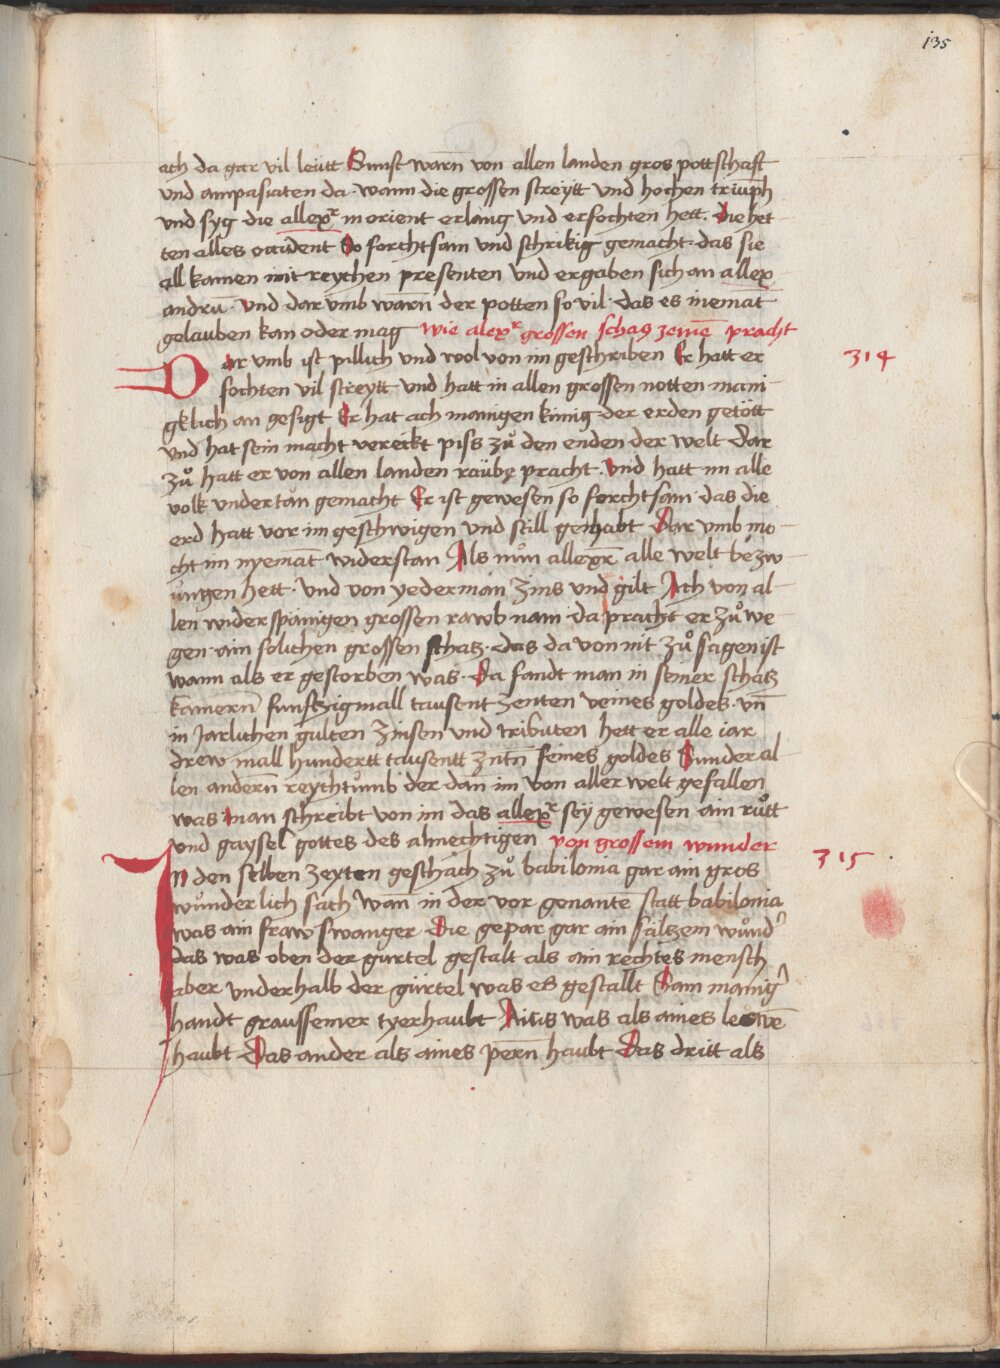 135
ach da gar vil leütt Sunst warn̄ von allen landen gros pottschaft
vnd ampasiaten da · wann die grossen streytt vnd hochen triūph
vnd syg die allexr̄ in orient erlang vnd erfochten hett. die het
ten alles occident So forchtsam vnd schrikig gemacht · das sie
all kamen mit reychen presenten vnd ergaben sich an allex
andrū · vnd dar vmb warn̄ der potten so vil · das es niemāt
gelauben kan oder mag wie alexr̄ grossen schatz zemē pracht
Dar vmb ist pillich vnd wol von im geschriben Er hatt er
314
fochten vil streytt vnd hatt in allen grossen notten mani
gklich an gesigt Er hat ach manigen künig der erden getött
vnd hat sein macht vereickt piss zů den enden der welt Dar
zů hatt er von allen landen raübe pracht · vnd hatt im alle
volk vndertan gemacht Er ist gewesen so forchtsam · das die
erd hatt vor im geschwigen vnd still gehabt Dar vmb mo
cht im nyemāt widerstan Als nůn allexr̄ alle welt bezw
ůngen hett · vnd von yederman zins vnd gilt Ach von al
len widerspänigen grossen rawb nam · da pracht er zů we
gen · ain solichen grossen schatz · das da von nit zů sagen ist
wann als er gestorben was · Da fandt man in seiner schatz
kamern̄ funftzigmall tausent zenten veines goldes · vn̄
in Jarlichen gülten zinsen vnd tributen hett er alle iar
drew mall hundertt tausentt zntn̄ feines goldes Sunder al
len andern̄ reychtůmb der dan im von aller welt gefallen
was Man schreibt von im das allexr̄ sey gewesen ain růtt
vnd gaysel gottes des almechtigen von grossem wunder
In den selben zeyten geschach zů babilonia gar ain gros
315
wůnderlich sach wan̄ in der vor genante statt babilonia
was ain fraw swanger Die gepar gar ain sältzem wůnd
das was oben der gürtel gestalt als ain rechtes mensch
aber vnderhalb der gürtel was es gestallt Sam manig
handt graussemer tyerhaubt Ains was als aines leowē
haubt Das ander als aines pern̄ haubt Das dritt als